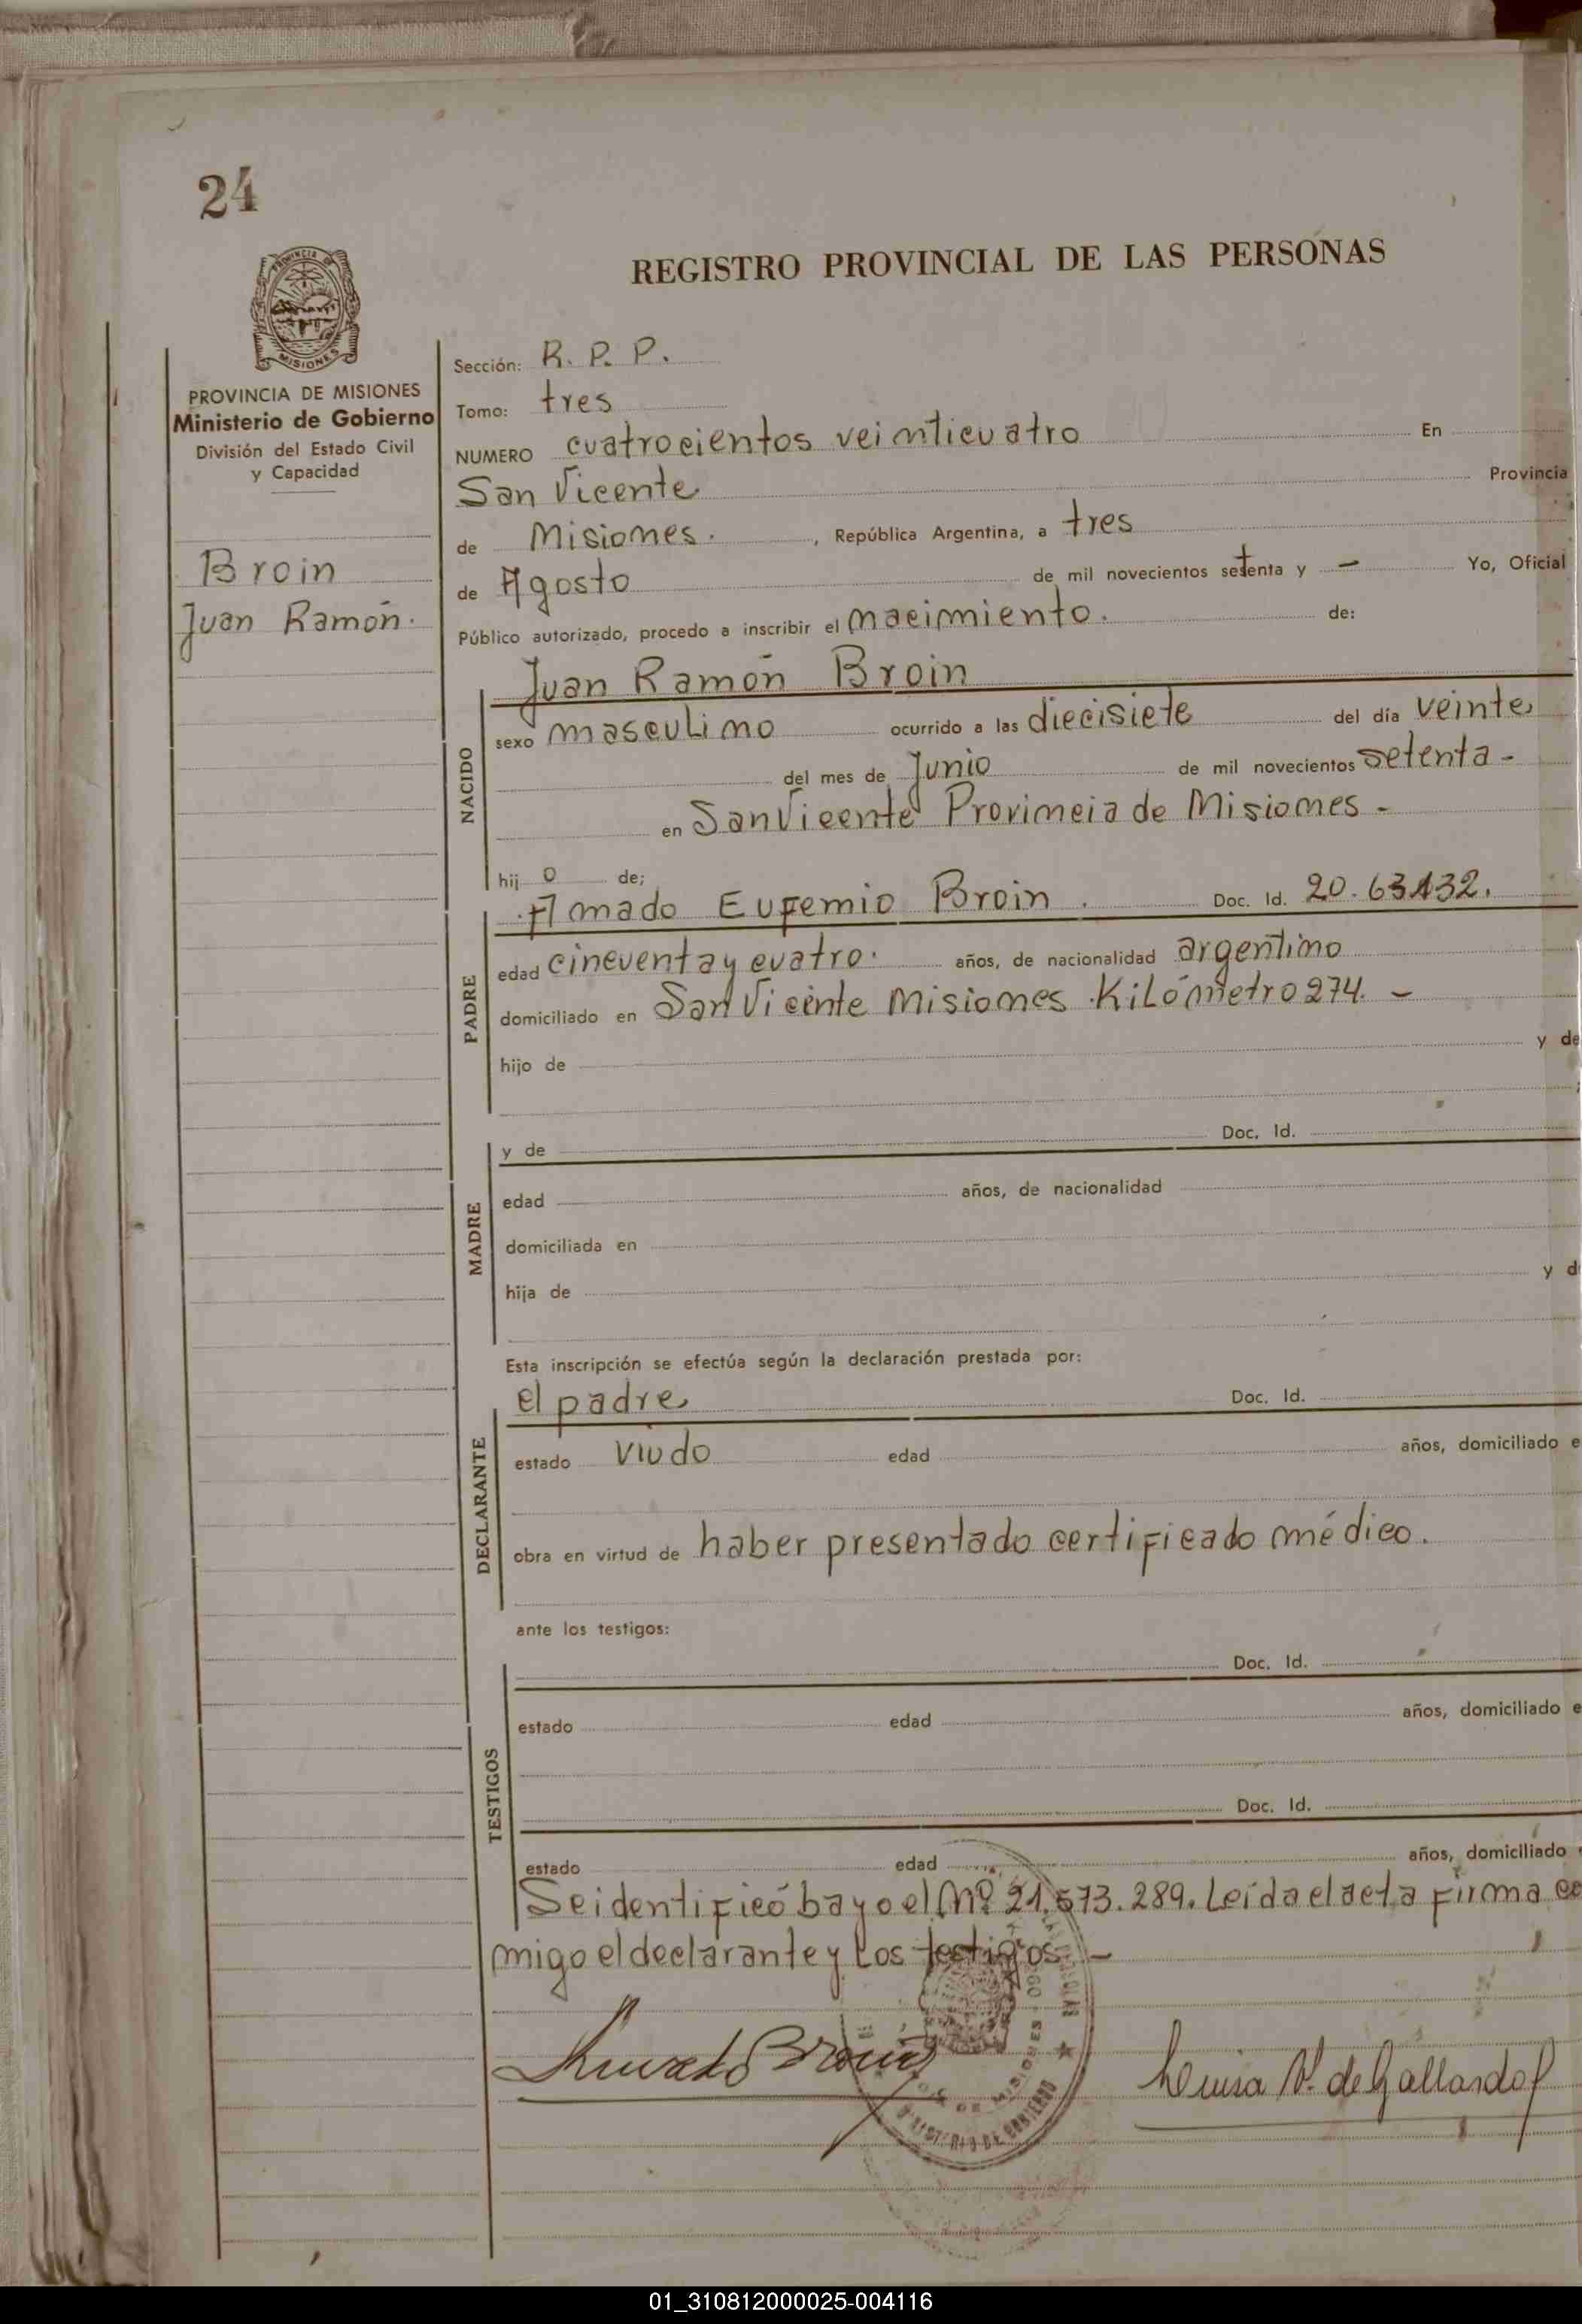 24
REGISTRO PROVINCIAL DE LAS PERSONAS
PROVINCIA DE
MISIONES
PROVINCIA DE MISIONES
Ministerio de Gobierno
División del Estado Civil
y Capacidad
Broin
Juan Ramón.
Sección: R. P. P.
Tomo: tres
NUMERO cuatrocientos veinticuatro En
San Vicente Provincia
de Misiones. , República Argentina, a tres
de Agosto de mil novecientos setenta y — Yo, Oficial
Público autorizado, procedo a inscribir el nacimiento. de:
NACIDO
Juan Ramón Broin
sexo masculino ocurrido a las diecisiete del día veinte
del mes de Junio de mil novecientos setenta -
en San Vicente Provincia de Misiones -
hij o de;
PADRE
Amado Eufemio Broin. Doc. Id. 20.63132.
edad cincuenta y cuatro. años, de nacionalidad argentino
domiciliado en San Vicente Misiones Kilómetro 274. —
hijo de y de
MADRE
y de Doc. Id.
edad años, de nacionalidad
domiciliada en
hija de y d
Esta inscripción se efectúa según la declaración prestada por:
DECLARANTE
el padre Doc. Id.
estado viudo edad años, domiciliado e
obra en virtud de haber presentado certificado médico.
ante los testigos:
TESTIGOS
Doc. Id.
estado edad años, domiciliado e
Doc. Id.
estado edad años, domiciliado
Se identificó bayo el Nº 21.573.289. Leída el acta firma co
migo el declarante y Los testigos —
Broin
Luisa V. de Gallardo
MISIONES
MINISTERIO DE GOBIERNO
01_310812000025-004116